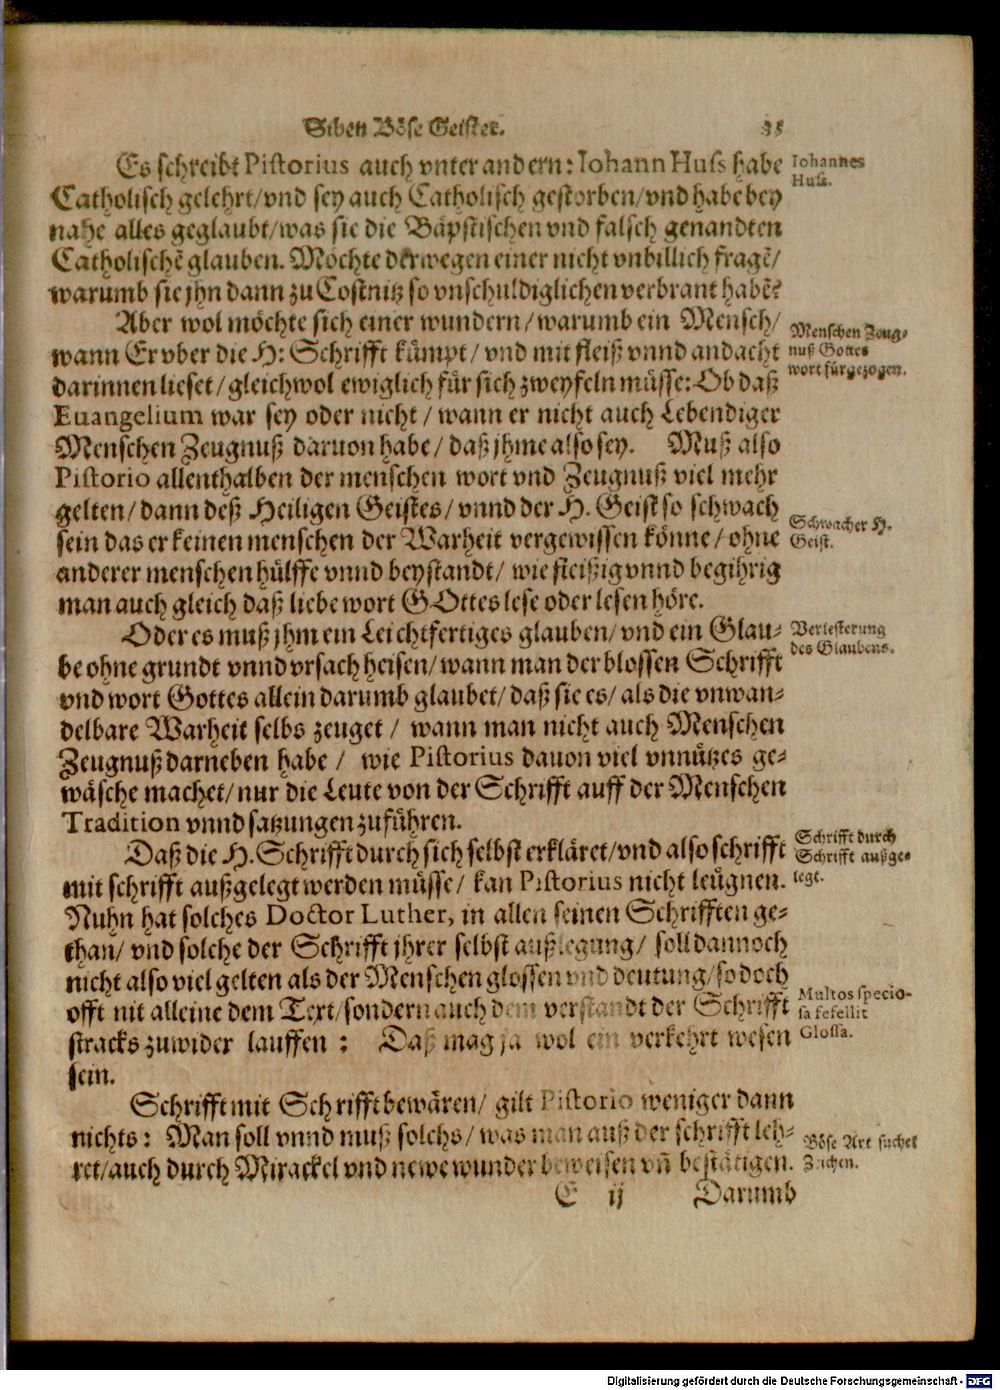 Siben Böse Geister. 35
Es schreibt Pistorius auch vnter andern: Iohann Huss habe
Iohannes
Huss.
Catholisch gelehrt/vnd sey auch Catholisch gestorben/vnd habe bey
nahe alles geglaubt/was sie die Bäpstischen vnd falsch genandten
Catholischē glauben. Möchte derwegen einer nicht vnbillich fragē/
warumb sie jhn dann zu Costnitz so vnschuldiglichen verbrant habē?
Aber wol möchte sich einer wundern/warumb ein Mensch/
Menschen Zeug-
nuß Gottes
wort fürgezogen.
wann Er vber die H: Schrifft kümpt/ vnd mit fleiß vnnd andacht
darinnen lieset/gleichwol ewiglich für sich zweyfeln müsse: Ob daß
Euangelium war sey oder nicht/wann er nicht auch Lebendiger
Menschen Zeugnuß daruon habe/ daß jhme also sey. Muß also
Pistorio allenthalben der menschen wort vnd Zeugnuß viel mehr
gelten/dann deß Heiligen Geistes/ vnnd der H. Geist so schwach
Schwacher H.
Geist.
sein das er keinen menschen der Warheit vergewissen könne/ohne
anderer menschen hülffe vnnd beystandt/ wie fleißig vnnd begihrig
man auch gleich daß liebe wort GOttes lese oder lesen höre.
Oder es muß jhm ein Leichtfertiges glauben/vnd ein Glau-
Verlesterung
des Glaubens.
be ohne grundt vnnd vrsach heisen/wann man der blossen Schrifft
vnd wort Gottes allein darumb glaubet/daß sie es/als die vnwan-
delbare Warheit selbs zeuget / wann man nicht auch Menschen
Zeugnuß darneben habe / wie Pistorius dauon viel vnnützes ge-
wäsche machet/nur die Leute von der Schrifft auff der Menschen
Tradition vnnd satzungen zuführen.
Daß die H. Schrifft durch sich selbst erkläret/vnd also schrifft
Schrifft durch
Schrifft außge-
lege.
mit schrifft außgelegt werden müsse/ kan Pistorius nicht leügnen.
Nuhn hat solches Doctor Luther, in allen seinen Schrifften ge-
than/ vnd solche der Schrifft jhrer selbst außlegung/ soll dannoch
nicht also viel gelten als der Menschen glossen vnd deutung/so doch
offt nit alleine dem Text/sondern auch dem verstandt der Schrifft
Multos specio-
sa fefellit
Glossa.
stracks zuwider lauffen : Daß mag ja wol ein verkehrt wesen
sein.
Schrifft mit Schrifft bewären/ gilt Pistorio weniger dann
nichts: Man soll vnnd muß solchs/was man auß der schrifft leh-
Böse Art suchet
Zeichen.
ret/auch durch Mirackel vnd newe wunder beweisen vñ bestätigen.
E ij Darumb
Digitalisierung gefördert durch die Deutsche Forschungsgemeinschaft - DFG